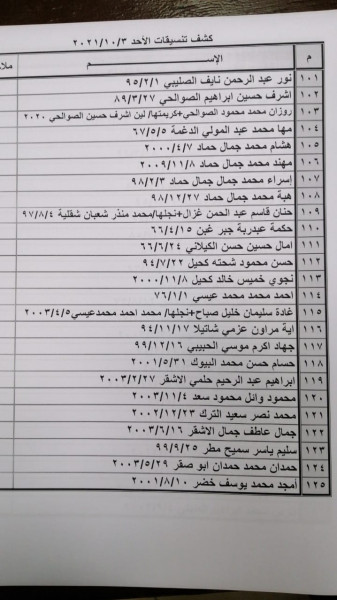 كشف تنسيقات الأحد ٢٠٢١/١٠/٣
م الإســـــم ملا
١٠١ نور عبد الرحمن نايف الصليبي ٩٥/٢/١
١٠٢ اشرف حسين ابراهيم الصوالحي ٨٩/٣/٢٧
١٠٣ روزان محمد محمود الصوالحي+كريمتها/ لين اشرف حسين الصوالحي ٢٠٢٠
١٠٤ مها محمد عبد المولي الدغمة ٦٧/٥/٥
١٠٥ هشام محمد جمال حماد ٢٠٠٠/٤/٧
١٠٦ مهند محمد جمال حماد ٢٠٠٩/١١/٨
١٠٧ إسراء محمد جمال جمال حماد ٩٨/٢/٣
١٠٨ هبة محمد جمال حماد ٩٨/١٢/٢٧
١٠٩ حنان قاسم عبد الحمن غزال+نجلها/محمد منذر شعبان شقلية ٩٧/٨/٤
١١٠ حكمة عبدربة جبر غبن ٦٦/٤/١٥
١١١ امال حسين حسن الكيلاني ٦٦/٦/٢٤
١١٢ حسن محمود شحته كحيل ٩٤/٧/٢٢
١١٣ نجوي خميس خالد كحيل ٢٠٠٠/١١/٨
١١٤ احمد محمد محمد عيسي ٧٦/١/١
١١٥ غادة سليمان خليل صباح+نجلها/ محمد احمد محمدعيسي٢٠٠٣/٤/٥
١١٦ اية مراون عزمي شاتيلا ٩٤/١١/١٧
١١٧ جهاد اكرم موسي الحبيبي ٩٩/١٢/١٦
١١٨ حسام حسن محمد البيوك ٢٠٠١/٥/٣١
١١٩ ابراهيم عبد الرحيم حلمي الاشقر ٢٠٠٣/٢/٢٧
١٢٠ محمود وائل محمود سعد ٢٠٠٣/١١/٤
١٢١ محمد نصر سعيد الترك ٢٠٠٢/١٢/٢٣
١٢٢ جمال عاطف جمال الاشقر ٢٠٠٣/٦/١٦
١٢٣ سليم ياسر سميح مطر ٩٩/٩/٢٥
١٢٤ حمدان محمد حمدان ابو صقر ٢٠٠٣/٥/٢٩
١٢٥ أمجد محمد يوسف خضر ٢٠٠١/٨/١٠